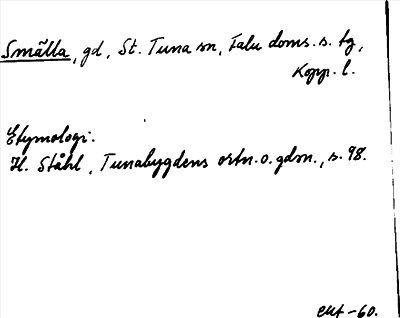 Smälla, gd, St. Tuna sn, Falu doms. s. tg,
Kopp. l.
Etymologi:
H. Ståhl, Tunabygdens ortn. o. gdsn., s. 98.
-60.